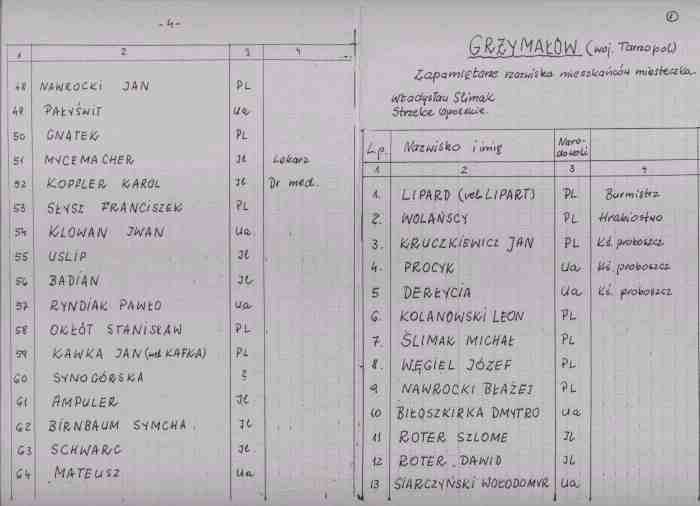 - 4 -
1 2 3 4
48 NAWROCKI JAN PL
49 PAŁYŚWIT Ua
50 GNATEK PL
51 MYCEMACHER Jz Lekarz
52 KOPPLER KAROL Jz Dr med.
53 SŁYSZ FRANCISZEK PL
54 KLOWAN IWAN Ua
55 USLIP Jz
56 BADIAN Jz
57 RYNDIAK PAWŁO Ua
58 OKŁÓT STANISŁAW PL
59 KAWKA JAN (vel KAFKA) PL
60 SYNOGÓRSKA ?
61 AMPULER Jz
62 BIRNBAUM SYMCHA Jz
63 SCHWARC Jz
64 MATEUSZ Ua
1
GRZYMAŁÓW (woj. Tarnopol)
Zapamiętane nazwiska mieszkańców miasteczka
Władysław Ślimak
Strzelce Opolskie.
L.p. Nazwisko i imię Naro-
dowość
1 2 3 4
1. LIPARD (vel LIPART) PL Burmistrz
2. WOLAŃSCY PL Hrabiostwo
3. KRUCZKIEWICZ JAN PL Ks. proboszcz
4. PROCYK Ua Ks. proboszcz
5 DERŁYCIA Ua Ks. proboszcz
6. KOLANOWSKI LEON PL
7. ŚLIMAK MICHAŁ PL
8. WĘGIEL JÓZEF PL
9 NAWROCKI BŁAŻEJ PL
10 BIŁOSZKIRKA DMYTRO Ua
11 ROTER SZLOME Jz
12 ROTER DAWID Jz
13 SIARCZYŃSKI WOŁODOMYR Ua